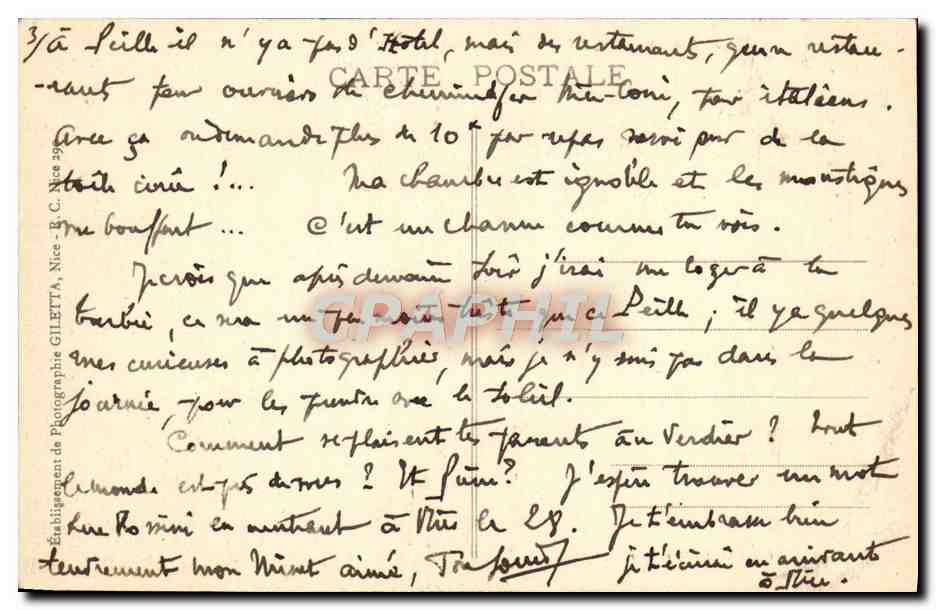 3/ à Peille il n'y a pas d'Hôtel, mais des restaurants, qu'un restau-
CARTE POSTALE
-rants pour ouvriers de chemin de fer, pour italiens.
Avec ça on demande plus de 10 f par repas servi sur de la
toile cirée !... Ma chambre est ignoble et les moustiques
me bouffent ... C'est un charme comme tu vois.
Je crois que après demain soir j'irai me loger à la
Turbie, ce sera un peu moins triste que ce Peille ; il y a quelques
CPARPHIL
rues curieuses à photographier, mais je n'y suis pas dans la
journée, pour les prendre avec le soleil.
Comment se plaisent tes parents au Verdier ? Tout
le monde est-il ? Et ? J'espère trouver un mot
Rue Rossini en rentrant à Nice le 28. Je t'embrasse bien
tendrement mon Minet aimé, Ton je t'écrirai en arrivant
à Nice.
Établissement de Photographie GILETTA, Nice - E. C. Nice 29